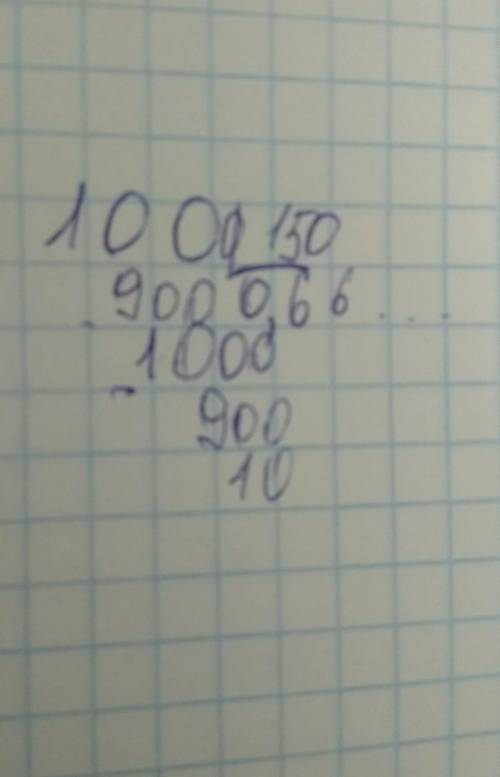 1000 150
- 900 0,66...
1000
- 900
10